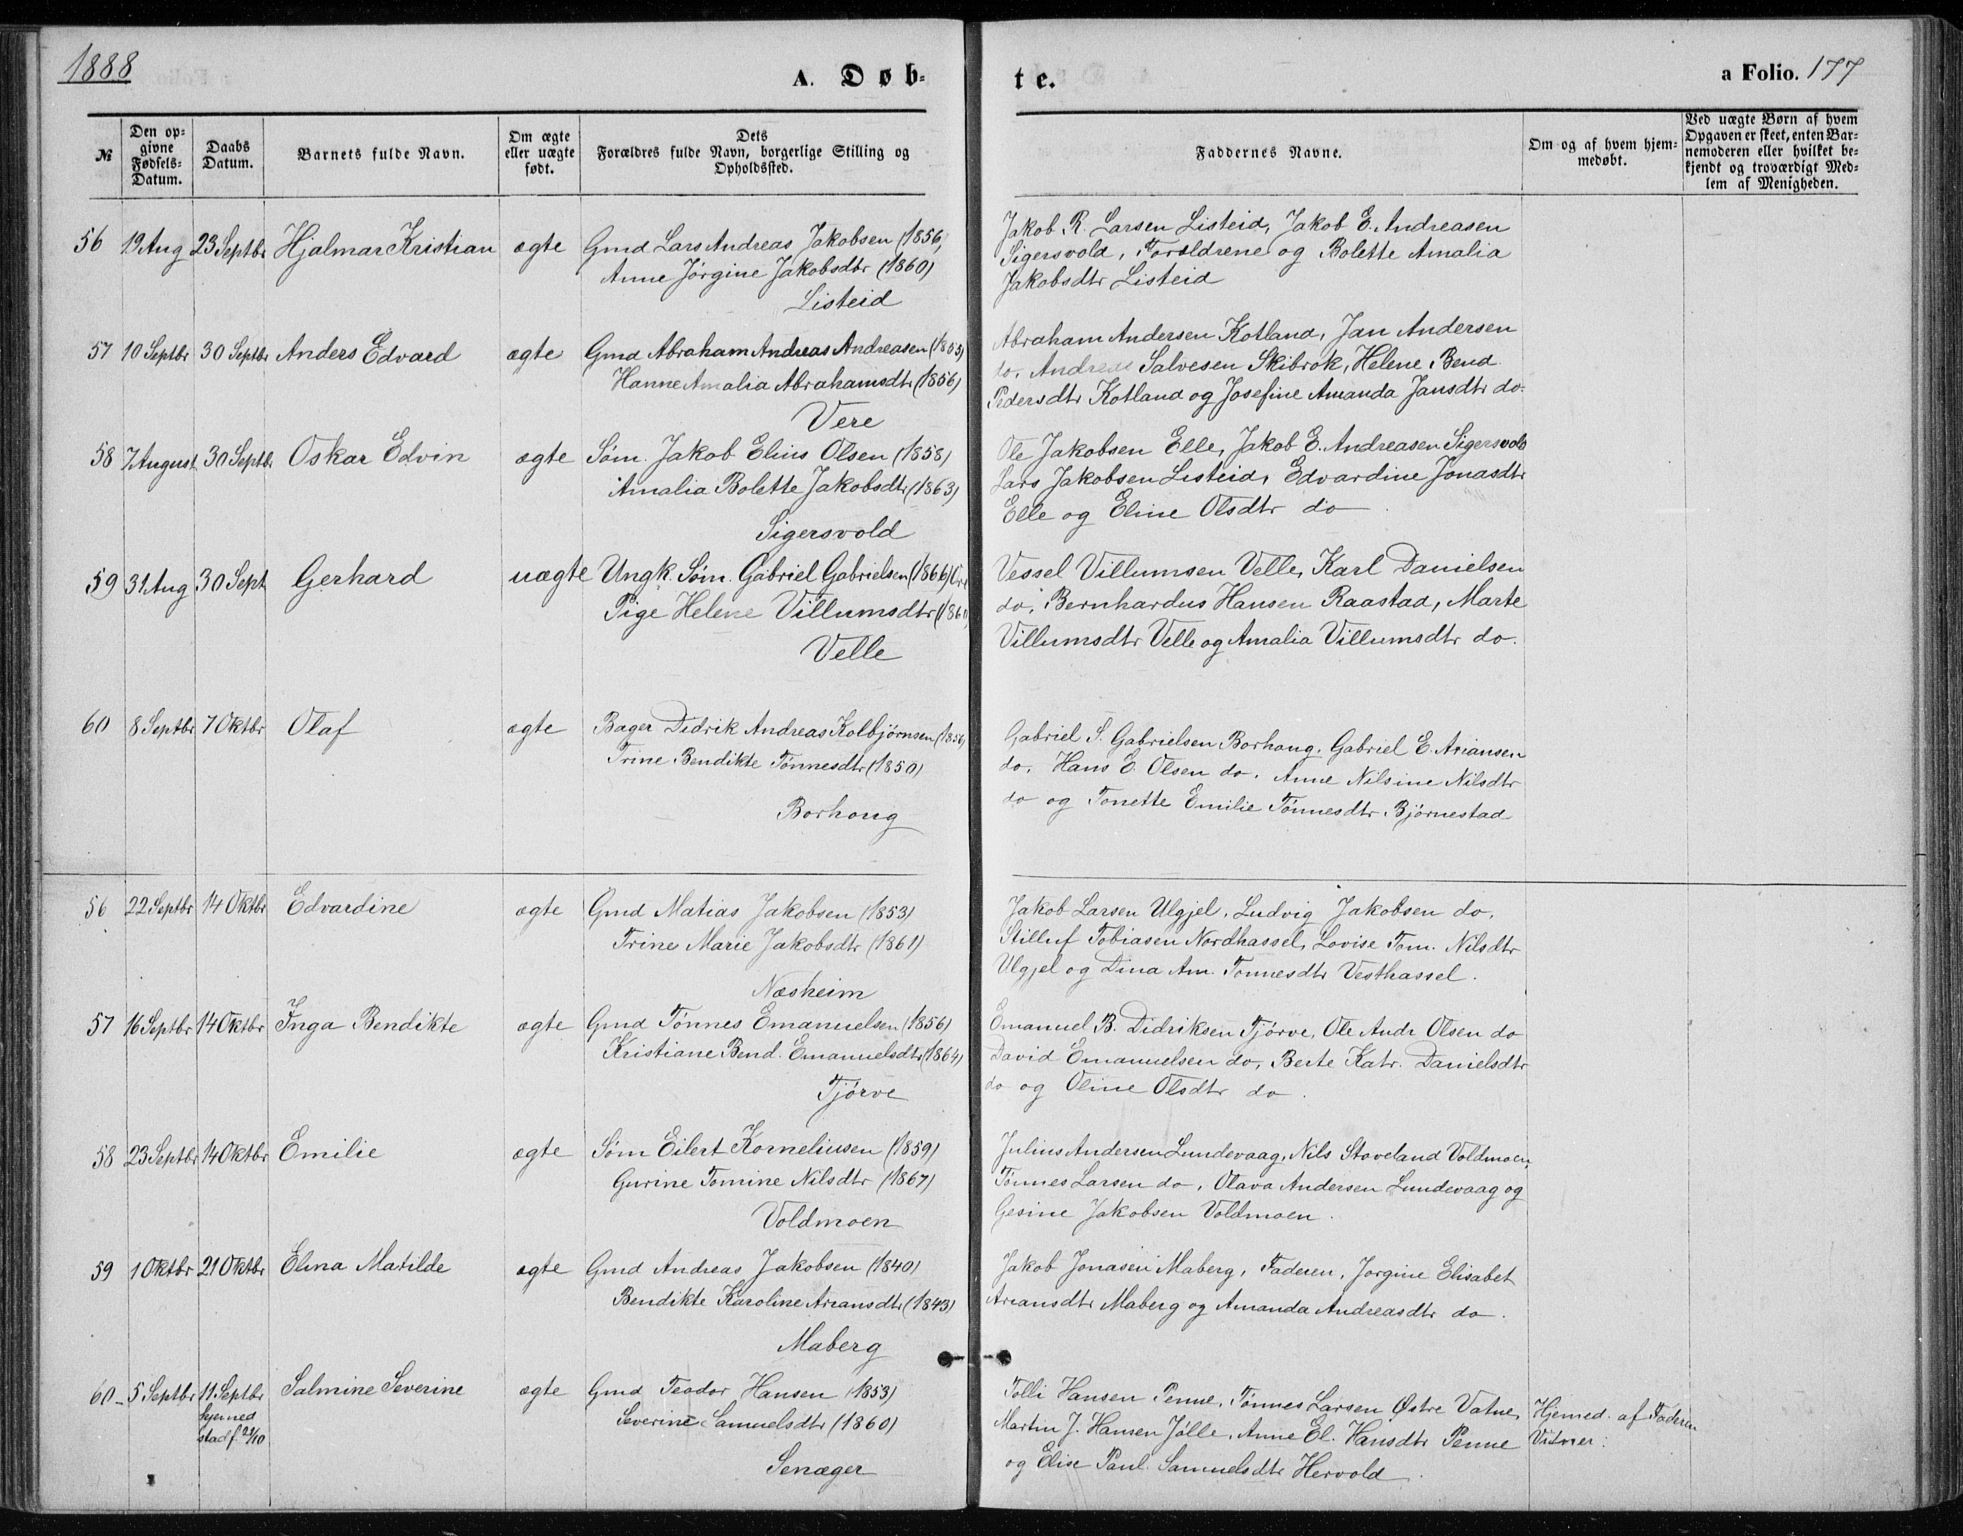 1888
A. Døb-
te.
a Folio. 177
№
Den op-
givne
Fødsels-
Datum.
Daabs
Datum.
Barnets fulde Navn.
Om ægte
eller uægte
født.
Dets
Forældres fulde Navn, borgerlige Stilling og
Opholdssted.
Faddernes Navne.
Om og af hvem hjem-
medøbt.
Ved uægte Børn af hvem
Opgaven er skeet, enten Bar-
nemoderen eller hvilket be-
kjendt og troværdigt Med-
lem af Menigheden.
56 19 Aug 23 Septbr Hjalmar Kristian ægte Gmd Lars Andreas Jakobsen (1856)
Anne Jørgine Jakobsdtr (1860)
Listeid
Jakob R. Larsen Listeid, Jakob E. Andreasen
Sigersvold, Forældrene og Bolette Amalia
Jakobsdtr Listeid
57 10 Septbr 30 Septbr Anders Edvard ægte Gmd Abraham Andreas Andreasen
Hanne Amalia Abrahamsdtr (1856)
Vere
Abraham Andersen Kotland, Jan Andersen
do, Andreas Salvesen Skibrok, Helene Bend
Pedersdtr Kotland og Josefine Amanda Jansdtr do.
58 7 August 30 Septbr Oskar Edvin ægte Søm. Jakob Elius Olsen (1858)
Amalia Bolette Jakobsdtr (1863)
Sigersvold
Ole Jakobsen Elle, Jakob E. Andreasen Sigersvold
Lars Jakobsen Listeid, Edvardine Jonasdtr
Elle og Eline Olsdtr do
59 31 Aug 30 Sept Gerhard uægte Ungk. Søm. Gabriel Gabrielsen (1866)
Pige Helene Villumsdtr
Velle
Vessel Villumsen Velle, Karl Danielsen
do, Bernhardus Hansen Raastad, Marte
Villumsdtr Velle og Amalia Villumsdtr do.
60 8 Septbr 7 Oktbr Olaf ægte Bager Didrik Andreas Kolbjørnsen (1856)
Trine Bendikte Tønnesdtr (1850)
Borhoug
Gabriel S. Gabrielsen Borhoug, Gabriel E. Ariansen
do, Hans E. Olsen do, Anne Nilsine Nilsdtr
do og Tonette Emilie Tønnesdtr Bjørnestad
56 22 Septbr 14 Oktbr Edvardine ægte Gmd Matias Jakobsen (1853)
Trine Marie Jakobsdtr (1861)
Næsheim
Jakob Larsen Ulgjel, Ludvig Jakobsen do,
Stilluf Tobiasen Nordhassel, Lovise Tom. Nilsdtr
Ulgjel og Dina Am. Tonnesdtr Vesthassel.
57 16 Septbr 14 Oktbr Inga Bendikte ægte Gmd Tønnes Emanuelsen (1856)
Kristiane Bend. Emanuelsdtr (1864)
Tjørve
Emanuel B. Didriksen Tjørve, Ole Andr Olsen do
David Emanuelsen do, Berte Katr. Danielsdtr
do og Oline Olsdtr do.
58 23 Septbr 14 Oktbr Emilie ægte Søm Eilert Korneliusen (1859)
Gurine Tomine Nilsdtr (1867)
Voldmoen
Julius Andersen Lundevaag, Nils Staveland Voldmoen,
Tønnes Larsen do, Olava Andersen Lundevaag og
Gesine Jakobsen Voldmoen.
59 1 Oktbr 21 Oktbr Elina Matilde ægte Gmd Andreas Jakobsen (1840)
Bendikte Karoline Ariansdtr (1843)
Maberg
Jakob Jonasen Maberg, Faderen, Jorgine Elisabet
Ariansdtr Maberg og Amanda Andreasdtr do.
60 5 Septbr 11 Septbr Salmine Severine ægte Gmd Teodor Hansen (1853)
hjemed
stadf 21/10
Severine Samuelsdtr (1860)
Senæger
Tolli Hansen Penne, Tønnes Larsen Østre Vatne, Hjemed. af Faderen
Martin J. Hansen Jølle, Anne El. Hansdtr Penne Vidner:
og Elise Paul. Samuelsdtr Hervold.